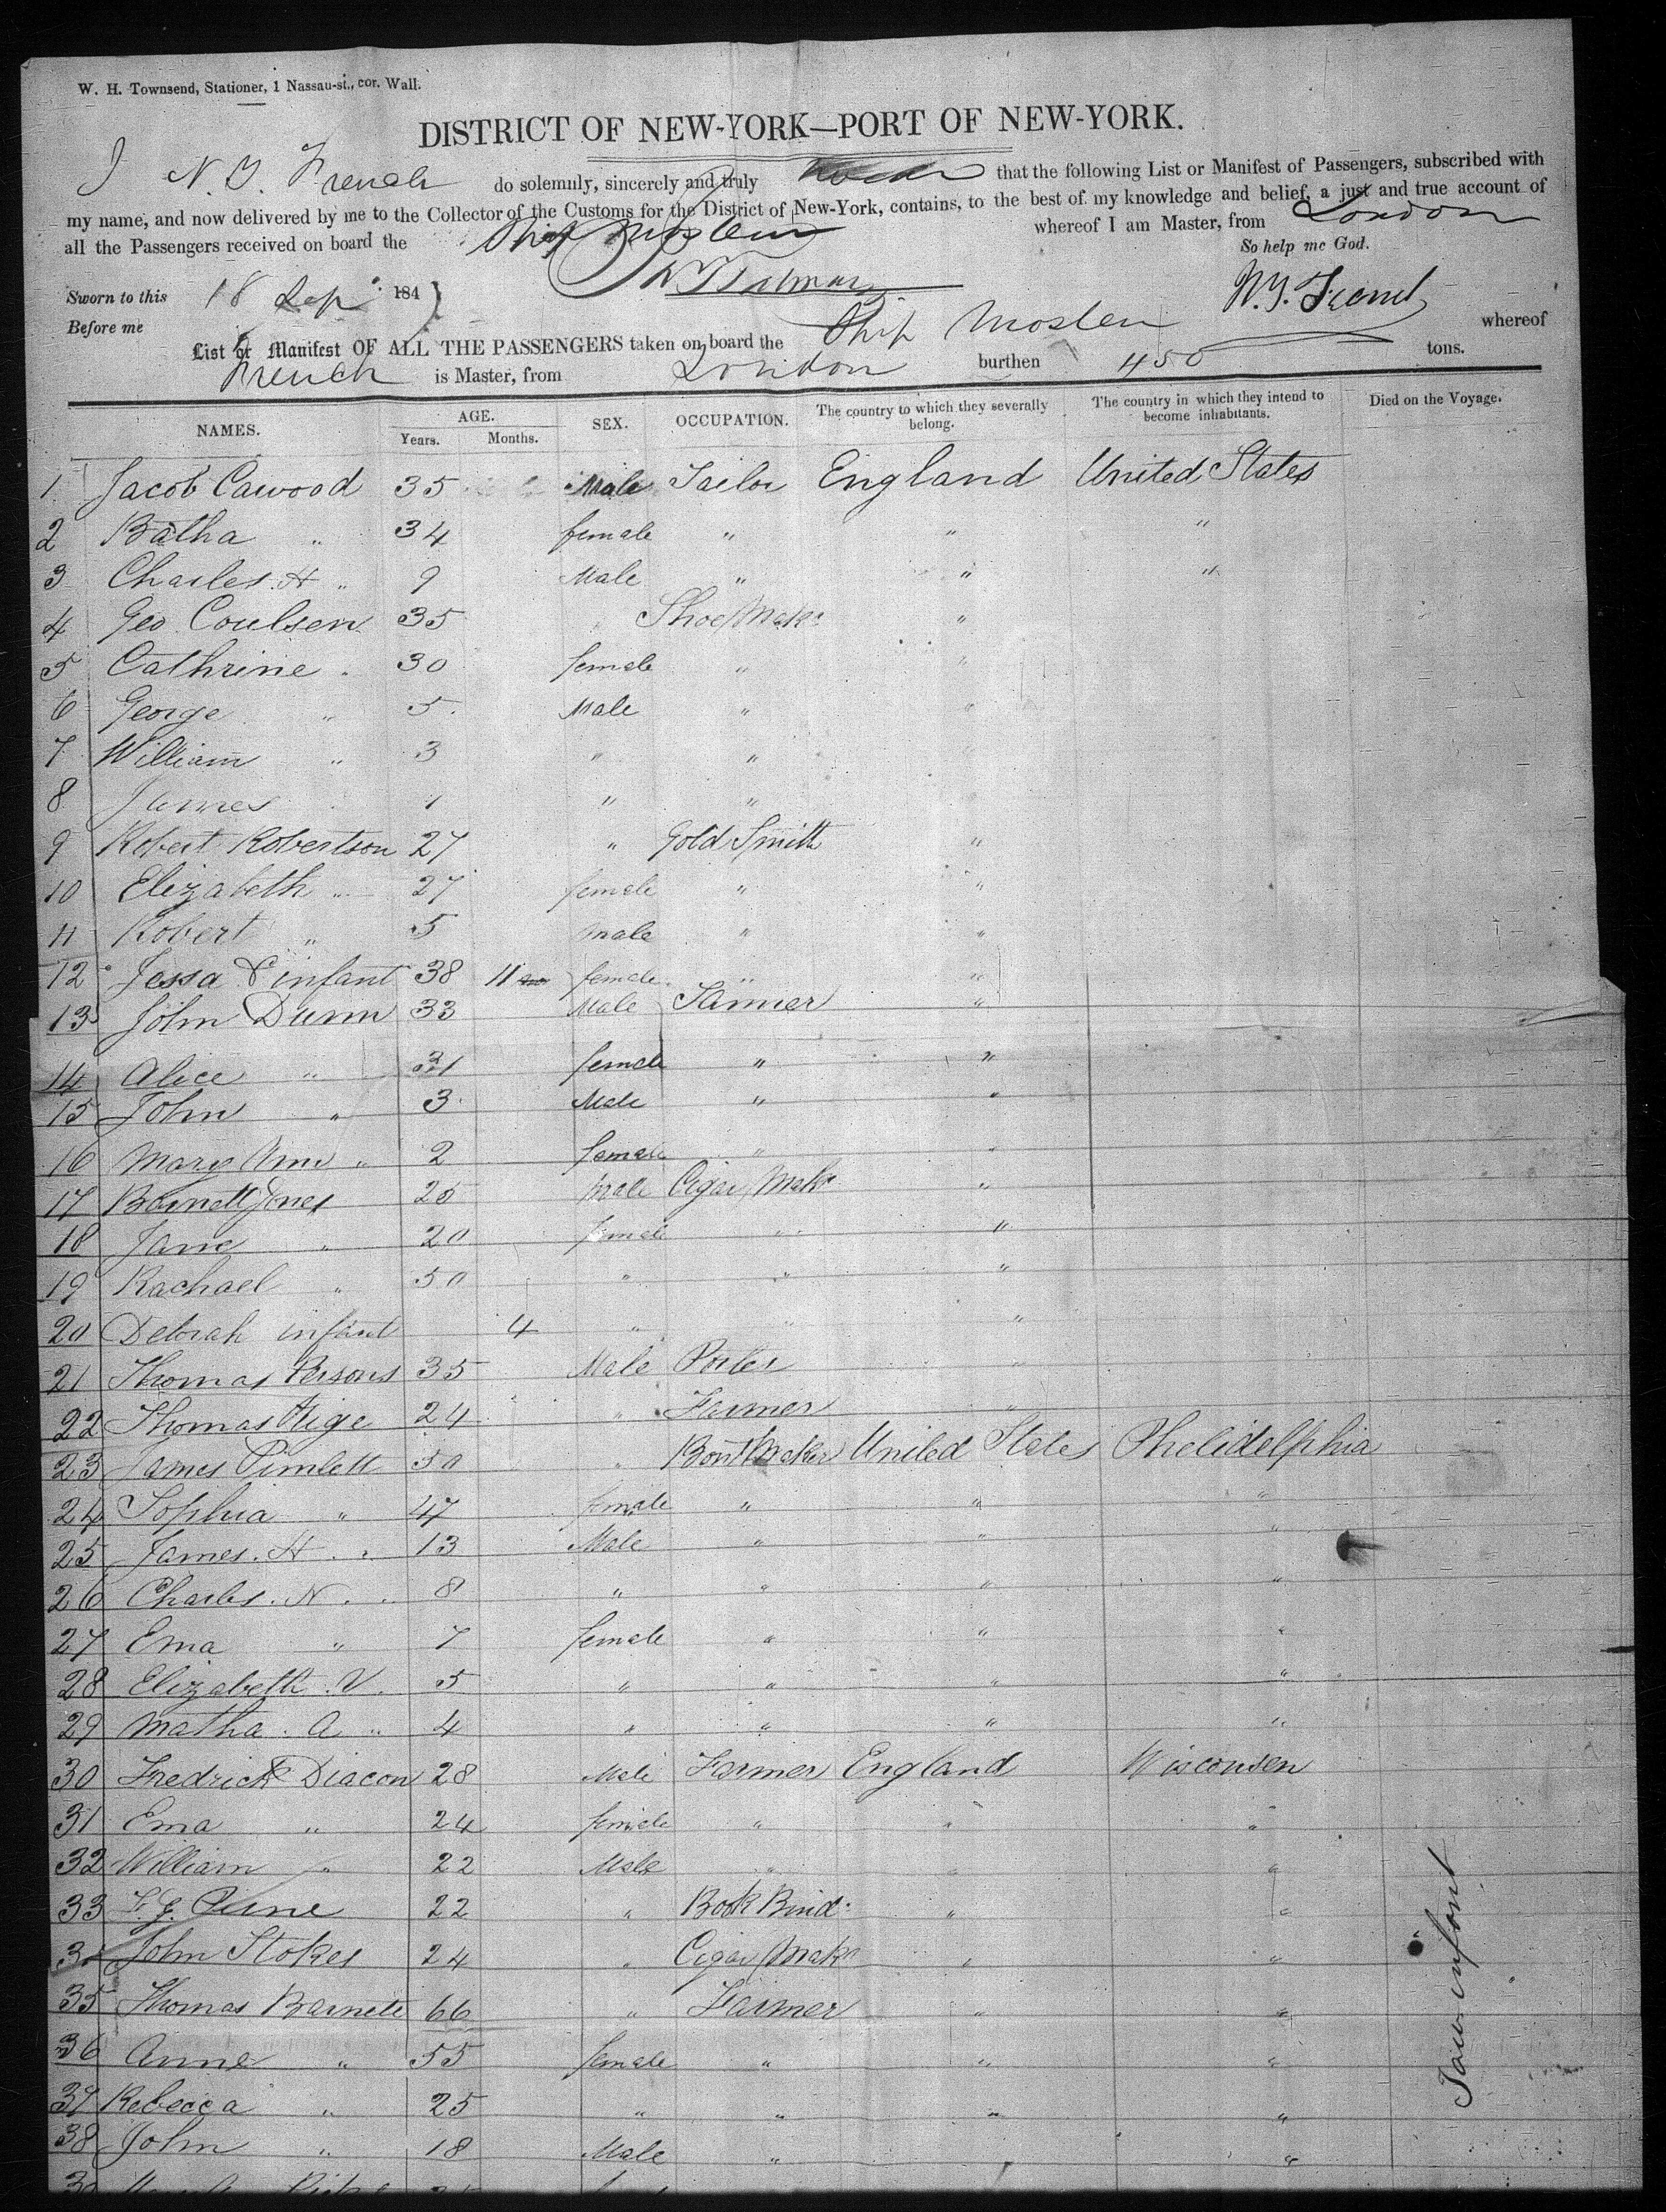 W. H. Townsend, Stationer, 1 Nassau-st., cor. Wall.
DISTRICT OF NEW-YORK—PORT OF NEW-YORK.
I N. G. French do solemnly, sincerely and truly that the following List or Manifest of Passengers, subscribed with
my name, and now delivered by me to the Collector of the Customs for the District of New-York, contains, to the best of my knowledge and belief, a just and true account of
all the Passengers received on board the Ship Moslem whereof I am Master, from London
So help me God.
Sworn to this 18 Sep 184
Before me
List or Manifest OF ALL THE PASSENGERS taken on board the Ship Moslem whereof
French is Master, from London burthen 450 tons.
NAMES. AGE. Years. Months. SEX. OCCUPATION. The country to which they severally belong. The country in which they intend to become inhabitants. Died on the Voyage.
1 Jacob Cawood 35 Male Tailor England United States
2 Batha " 34 female " " "
3 Charles. H " 9 Male " " "
4 Geo Coulsen 35 " Shoe Makr "
5 Cathrine " 30 female " "
6 George " 5 Male " "
7 William " 3 " "
8 James 1 " "
9 Robert Robertson 27 " Gold Smith "
10 Elizabeth " 27 female " "
11 Robert " 5 male " "
12 Jessa & infant 38 11 female " "
13 John Dunn 33 Male "
14 Alice " 31 female " "
15 John " 3 Male " "
16 Mary Ann " 2 female " "
17 Barnett Jones 25 Male Cigar Makr "
18 Jane " 20 female " "
19 Rachael " 50 " " "
20 Deborah infant 4 " " "
21 Thomas Persons 35 Male Porter "
22 Thomas 24 " Farmer "
23 James Pimlett 50 " Boot Maker United States Pheladelphia
24 Sophia " 47 female " " "
25 James. H " 13 Male " " "
26 Charles. N. " 8 " " " "
27 Ema " 7 female " " "
28 Elizabeth. V. 5 " " " "
29 Matha. A " 4 " " " "
30 Fredrick Diacon 28 Male Farmer England Wisconsen
31 Ema " 24 female " " "
32 William " 22 Male " " "
33 22 " Book Bind. " "
34 John Stokes 24 " Cigar Makr " "
35 Thomas Barnett 66 " Farmer " "
36 Anne " 55 female " " "
37 Rebecca " 25 " " " "
38 John " 18 Male " "
39
infant